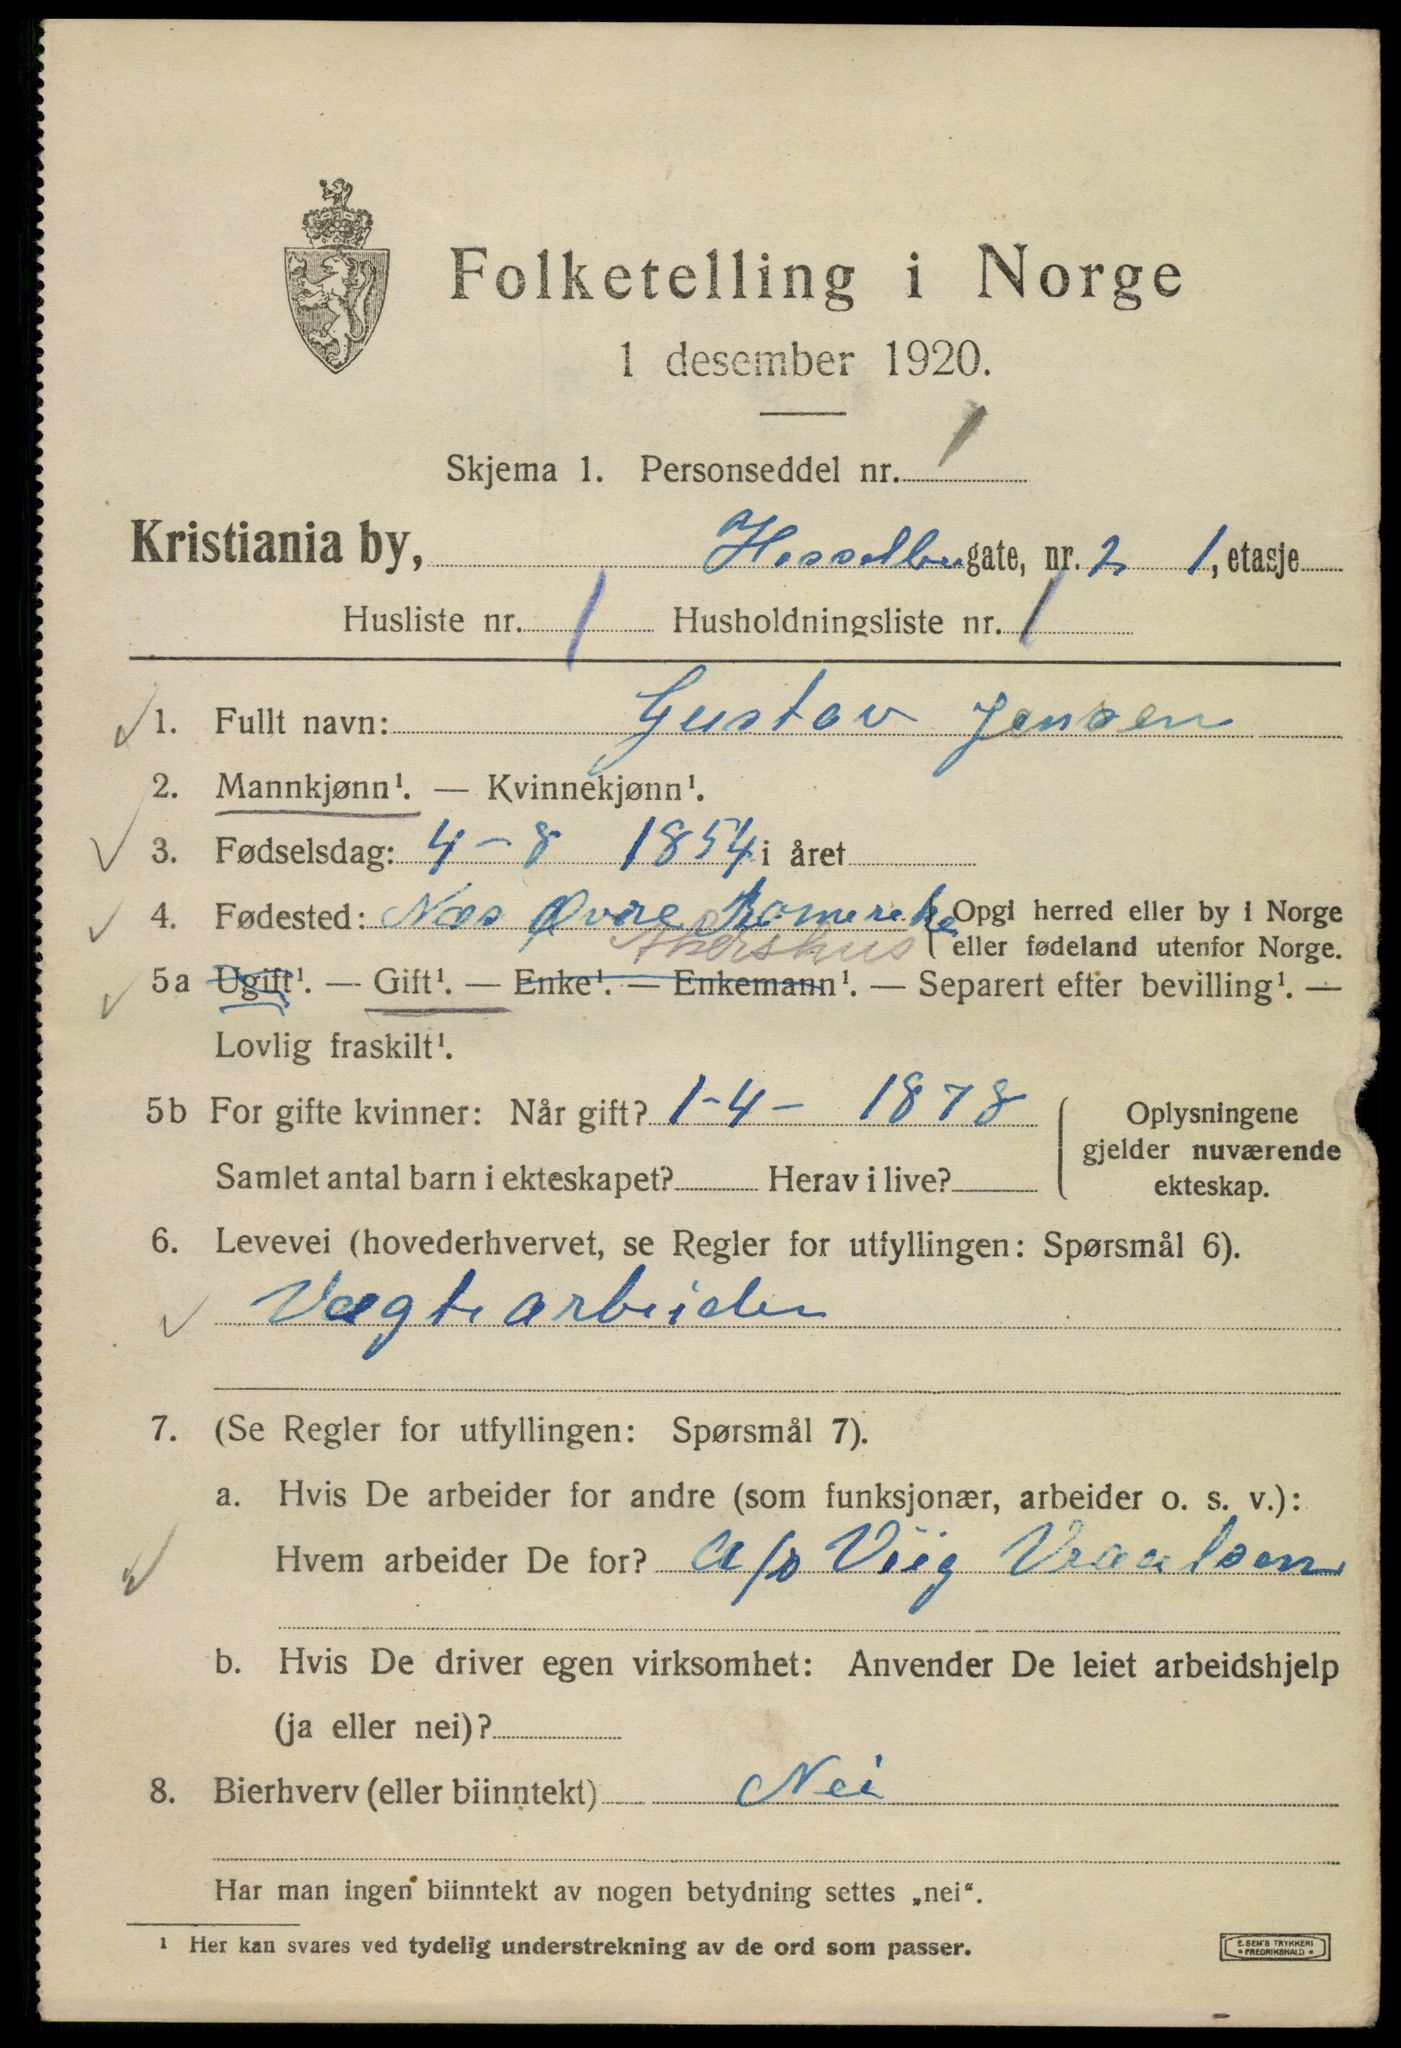 Folketelling i Norge
1 desember 1920.
Skjema 1. Personseddel nr. 1
Kristiania by, gate, nr. 2 1, etasje
Husliste nr. 1 Husholdningsliste nr. 1
1. Fullt navn: Gustav Jensen
2. Mannkjønn¹. — Kvinnekjønn¹.
3. Fødselsdag: 4-8 1854 i året
4. Fødested: Nes Øvre Romerike { Opgi herred eller by i Norge
Akershus eller fødeland utenfor Norge.
5a Ugift¹. — Gift¹. — Enke¹. — Enkemann¹. — Separert efter bevilling¹. —
Lovlig fraskilt¹.
5b For gifte kvinner: Når gift? 1-4- 1878 { Oplysningene
gjelder nuværende
Samlet antal barn i ekteskapet? Herav i live? ekteskap.
6. Levevei (hovederhvervet, se Regler for utfyllingen: Spørsmål 6).
Vægtearbeider
7. (Se Regler for utfyllingen: Spørsmål 7).
a. Hvis De arbeider for andre (som funksjonær, arbeider o. s. v.):
Hvem arbeider De for? A/S Viig
b. Hvis De driver egen virksomhet: Anvender De leiet arbeidshjelp
(ja eller nei)?
8. Bierhverv (eller biinntekt) Nei
Har man ingen biinntekt av nogen betydning settes „nei“.
¹ Her kan svares ved tydelig understrekning av de ord som passer.
E. SEM'S TRYKKERI
FREDRIKSHALD